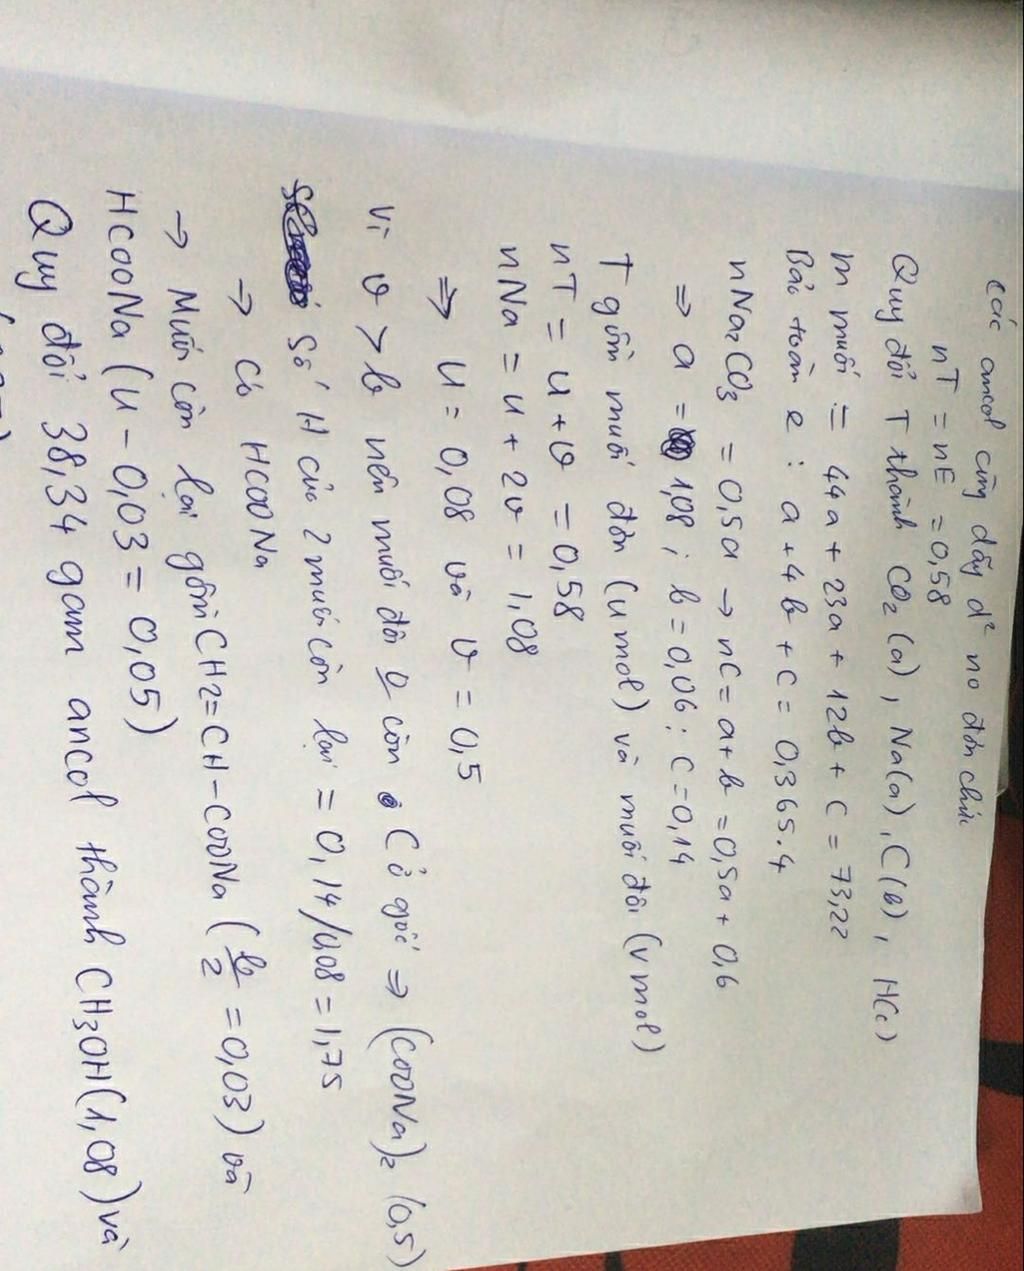 Các ancol cùng dãy đ² no đơn chức
nT = nE = 0,58
Quy đổi T thành CO₂ (a), Na(a), C(b), H(c)
m muối = 44a + 23a + 12b + c = 73,22
Bảo toàn e : a + 4b + c = 0,365.4
nNa₂CO₃ = 0,5a → nC = a + b = 0,5a + 0,6
⇒ a = 1,08 ; b = 0,06 ; c = 0,14
T gồm muối đơn (u mol) và muối đôi (v mol)
nT = u + v = 0,58
nNa = u + 2v = 1,08
⇒ u = 0,08 và v = 0,5
Vì v > b nên muối đôi 0 còn C ở gốc ⇒ (COONa)₂ (0,5)
Số H của 2 muối còn lại = 0,14/0,08 = 1,75
→ Có HCOONa
→ Muối còn lại gồm CH₂=CH-COONa (b/2 = 0,03) và
HCOONa (u - 0,03 = 0,05)
Quy đổi 38,34 gam ancol thành CH₃OH (1,08) và